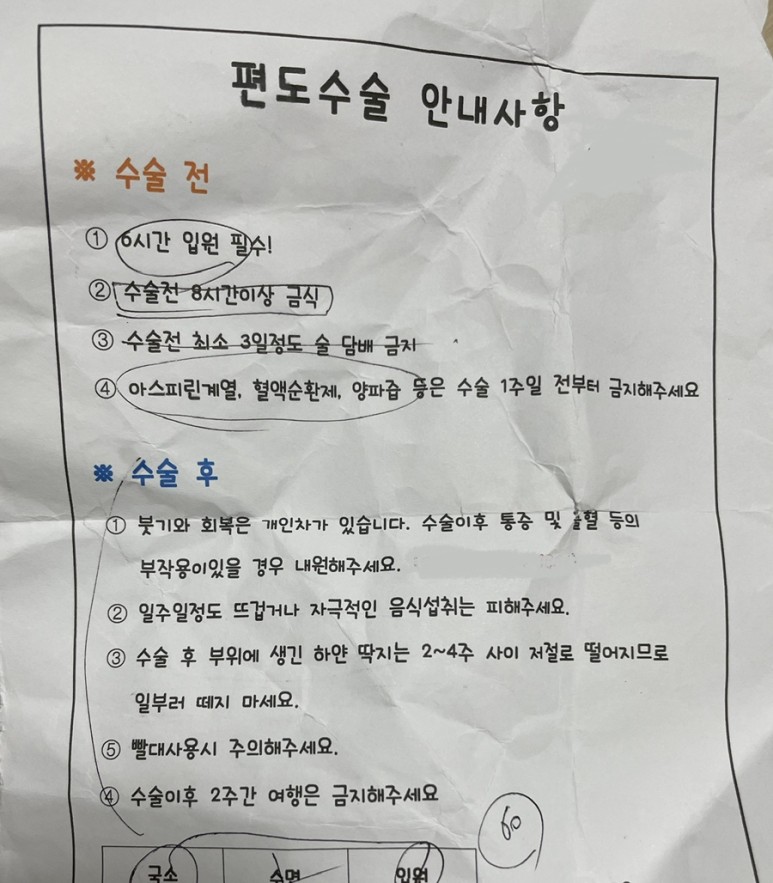 편도수술 안내사항
※ 수술 전
① 6시간 입원 필수!
② 수술전 8시간이상 금식
③ 수술전 최소 3일정도 술 담배 금지
④ 아스피린계열, 혈액순환제, 양파즙 등은 수술 1주일 전부터 금지해주세요
※ 수술 후
① 붓기와 회복은 개인차가 있습니다. 수술이후 통증 및 출혈 등의
부작용이있을 경우 내원해주세요.
② 일주일정도 뜨겁거나 자극적인 음식섭취는 피해주세요.
③ 수술 후 부위에 생긴 하얀 딱지는 2~4주 사이 저절로 떨어지므로
일부러 떼지 마세요.
⑤ 빨대사용시 주의해주세요.
④ 수술이후 2주간 여행은 금지해주세요
국소 수면 입원